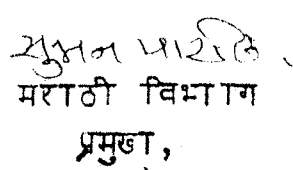 सुमन पाटील.
मराठी विभाग
प्रमुख,